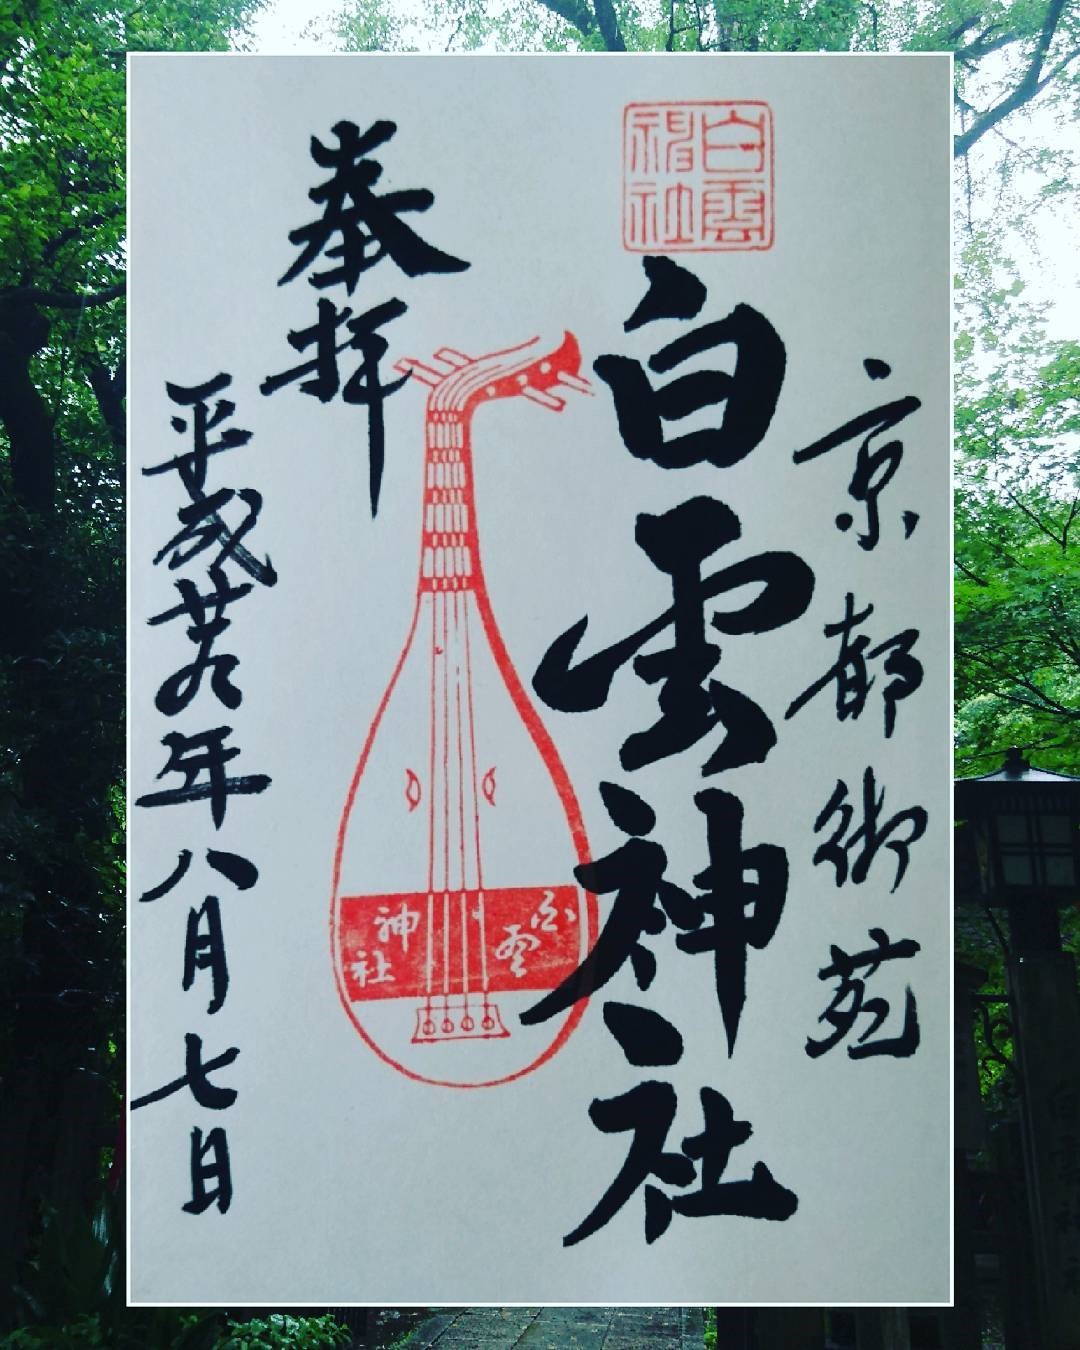 京都御苑
白雲
神社
白雲神社
白雲
神社
奉拝
平成廿九年八月七日